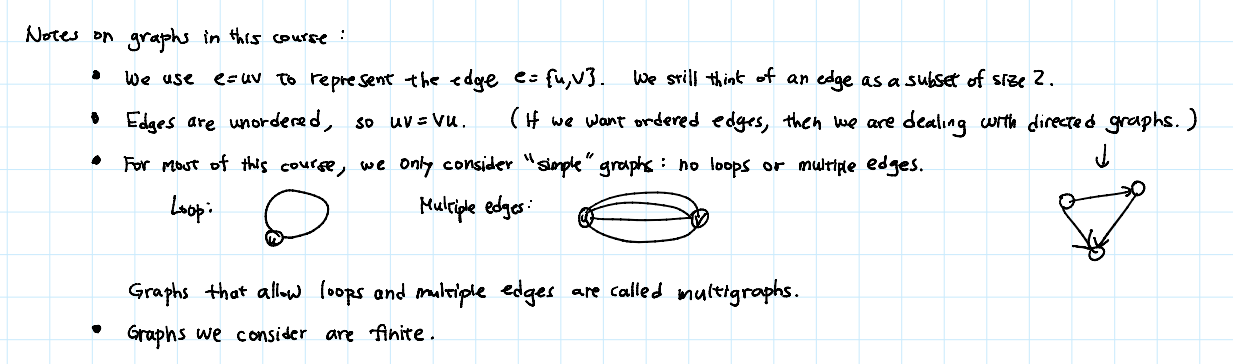 Notes on graphs in this course:
• We use e=uv to represent the edge e={u,v}. We still think of an edge as a subset of size 2.
• Edges are unordered, so uv=vu. (If we want ordered edges, then we are dealing with directed graphs.)
• For most of this course, we only consider "simple" graphs: no loops or multiple edges.
Loop: u Multiple edges: u v
Graphs that allow loops and multiple edges are called multigraphs.
• Graphs we consider are finite.